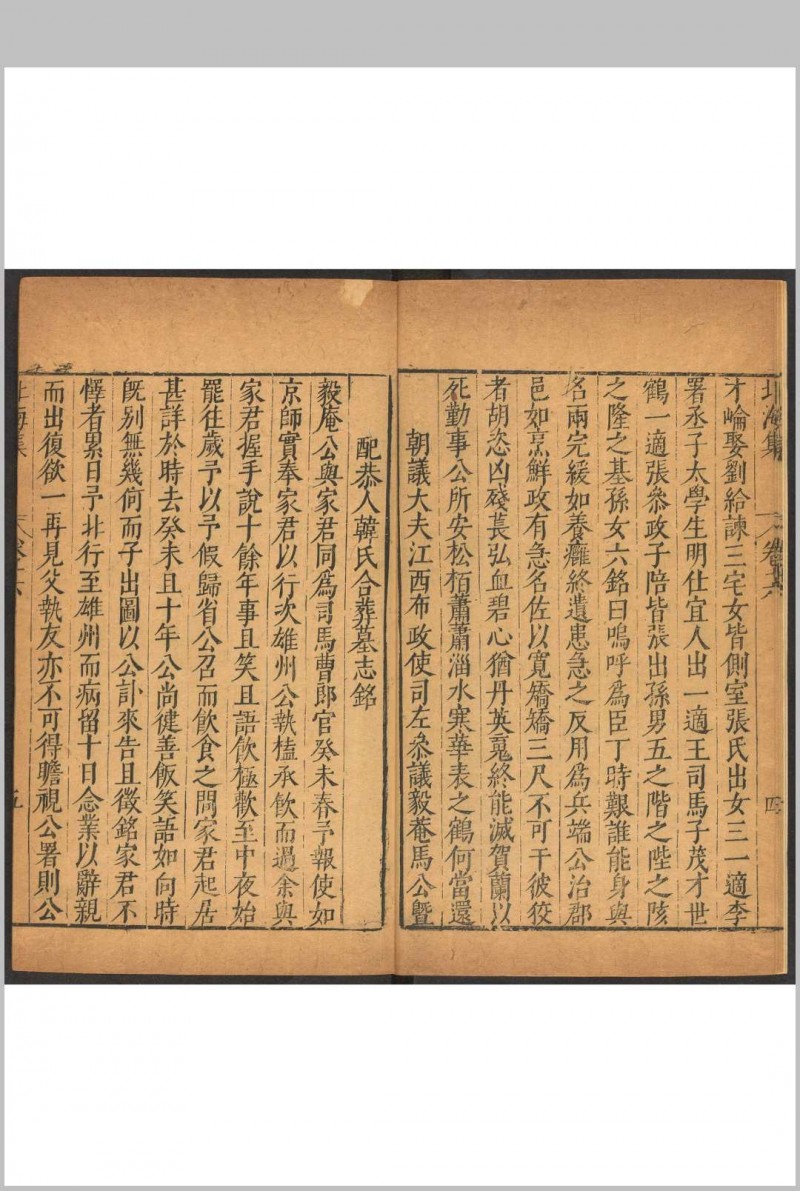 北海集 卷十六 四
才崘娶劉給諫三宅女皆側室張氏出女三一適李
署丞子太學生明仕宜人出一適王司馬子茂才世
鶴一適張叅政子陪皆張出孫男五之階之陛之陔
之隆之基孫女六銘曰嗚呼爲臣丁時艱誰能身與
名兩完緩如養癰終遺患急之反用爲兵端公治郡
邑如烹鮮政有急名佐以寛矯矯三尺不可干彼狡
者胡恣凶殘萇弘血碧心猶丹英䰟終能滅賀蘭以
死勤事公所安松栢蕭蕭淄水寒華表之鶴何當還
朝議大夫江西布政使司左叅議毅菴馬公曁
配恭人韓氏合葬墓志銘
毅庵公與家君同爲司馬曹郎官癸未春予報使如
京師實奉家君以行次雄州公執榼承飲而過余與
家君握手說十餘年事且笑且語飲極歡至中夜始
罷往歲予以予假歸省公召而飲食之問家君起居
甚詳於時去癸未且十年公尚徤善飯笑語如向時
旣别無幾何而子出圖以公訃來告且徵銘家君不
懌者累日予北行至雄州而病留十日念業以辭親
而出復欲一再見父執友亦不可得瞻視公署則公
北海集 五